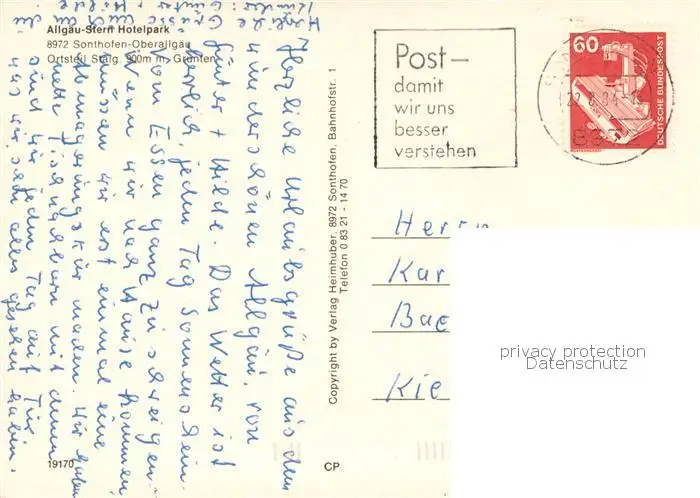 Allgäu-Stern Hotelpark
8972 Sonthofen-Oberallgäu
Ortsteil Staig, 900m m. Grünten
Herzliche Urlaubsgrüße aus dem
wunderschönen Allgäu, von
Günter + Hilde. Das Wetter ist
herrlich, jeden Tag Sonnenschein.
Vom Essen ganz zu schweigen.
Wenn wir nach Hause kommen
müssen wir erst einmal eine
Abmagerungskur machen. Wir haben
nette Tischnachbarn mit denen
sind wir jeden Tag auf Tür
was wir schon alles gesehen haben.
Herzliche Grüße auch an die
Kinder: Günter + Hilde
19170
Copyright by Verlag Heimhuber, 8972 Sonthofen, Bahnhofstr. 1
Telefon 0 83 21 - 14 70
CP
Post-
damit
wir uns
besser
verstehen
60
DEUTSCHE BUNDESPOST
8972
Herrn
Kar
Bac
Kie
privacy protection
Datenschutz